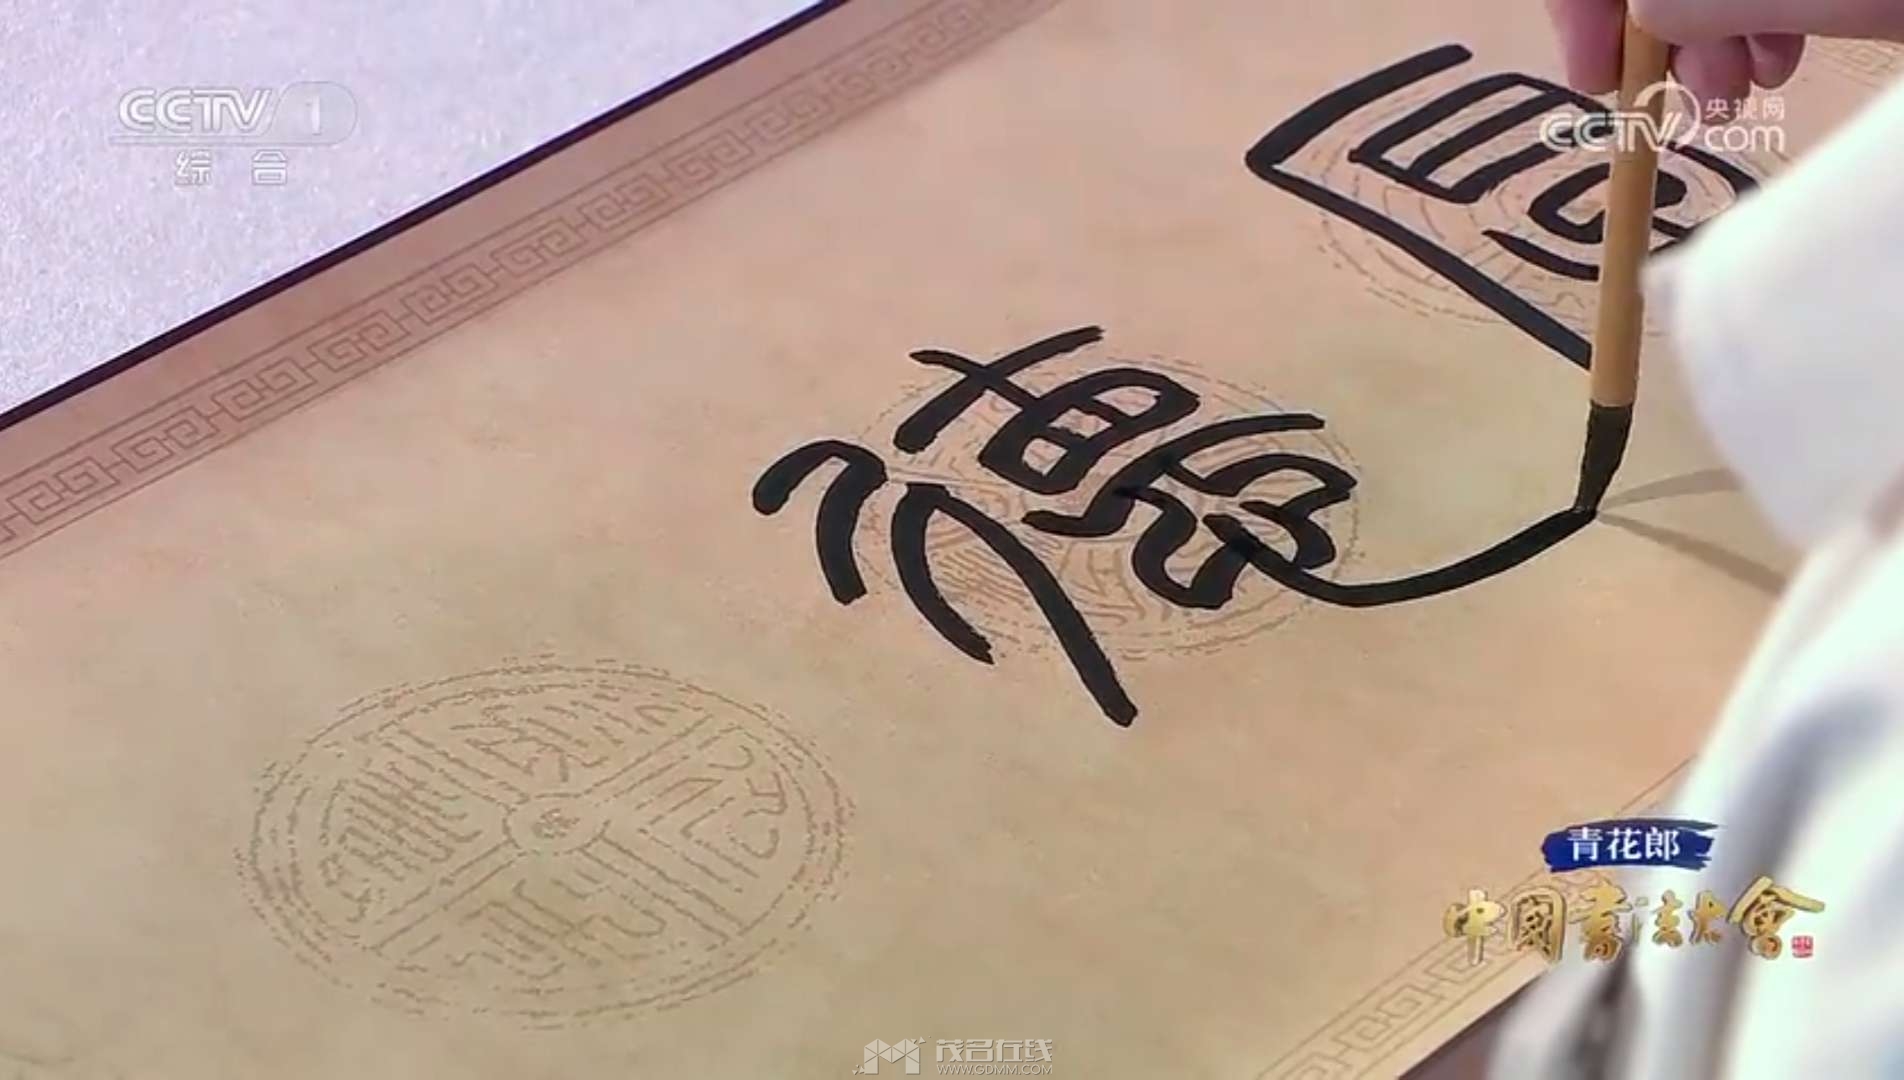 CCTV 1
综合
央视网
CCTV com
厚德
青花郎
中國書法大會
茂名在线
WWW.GDMM.COM